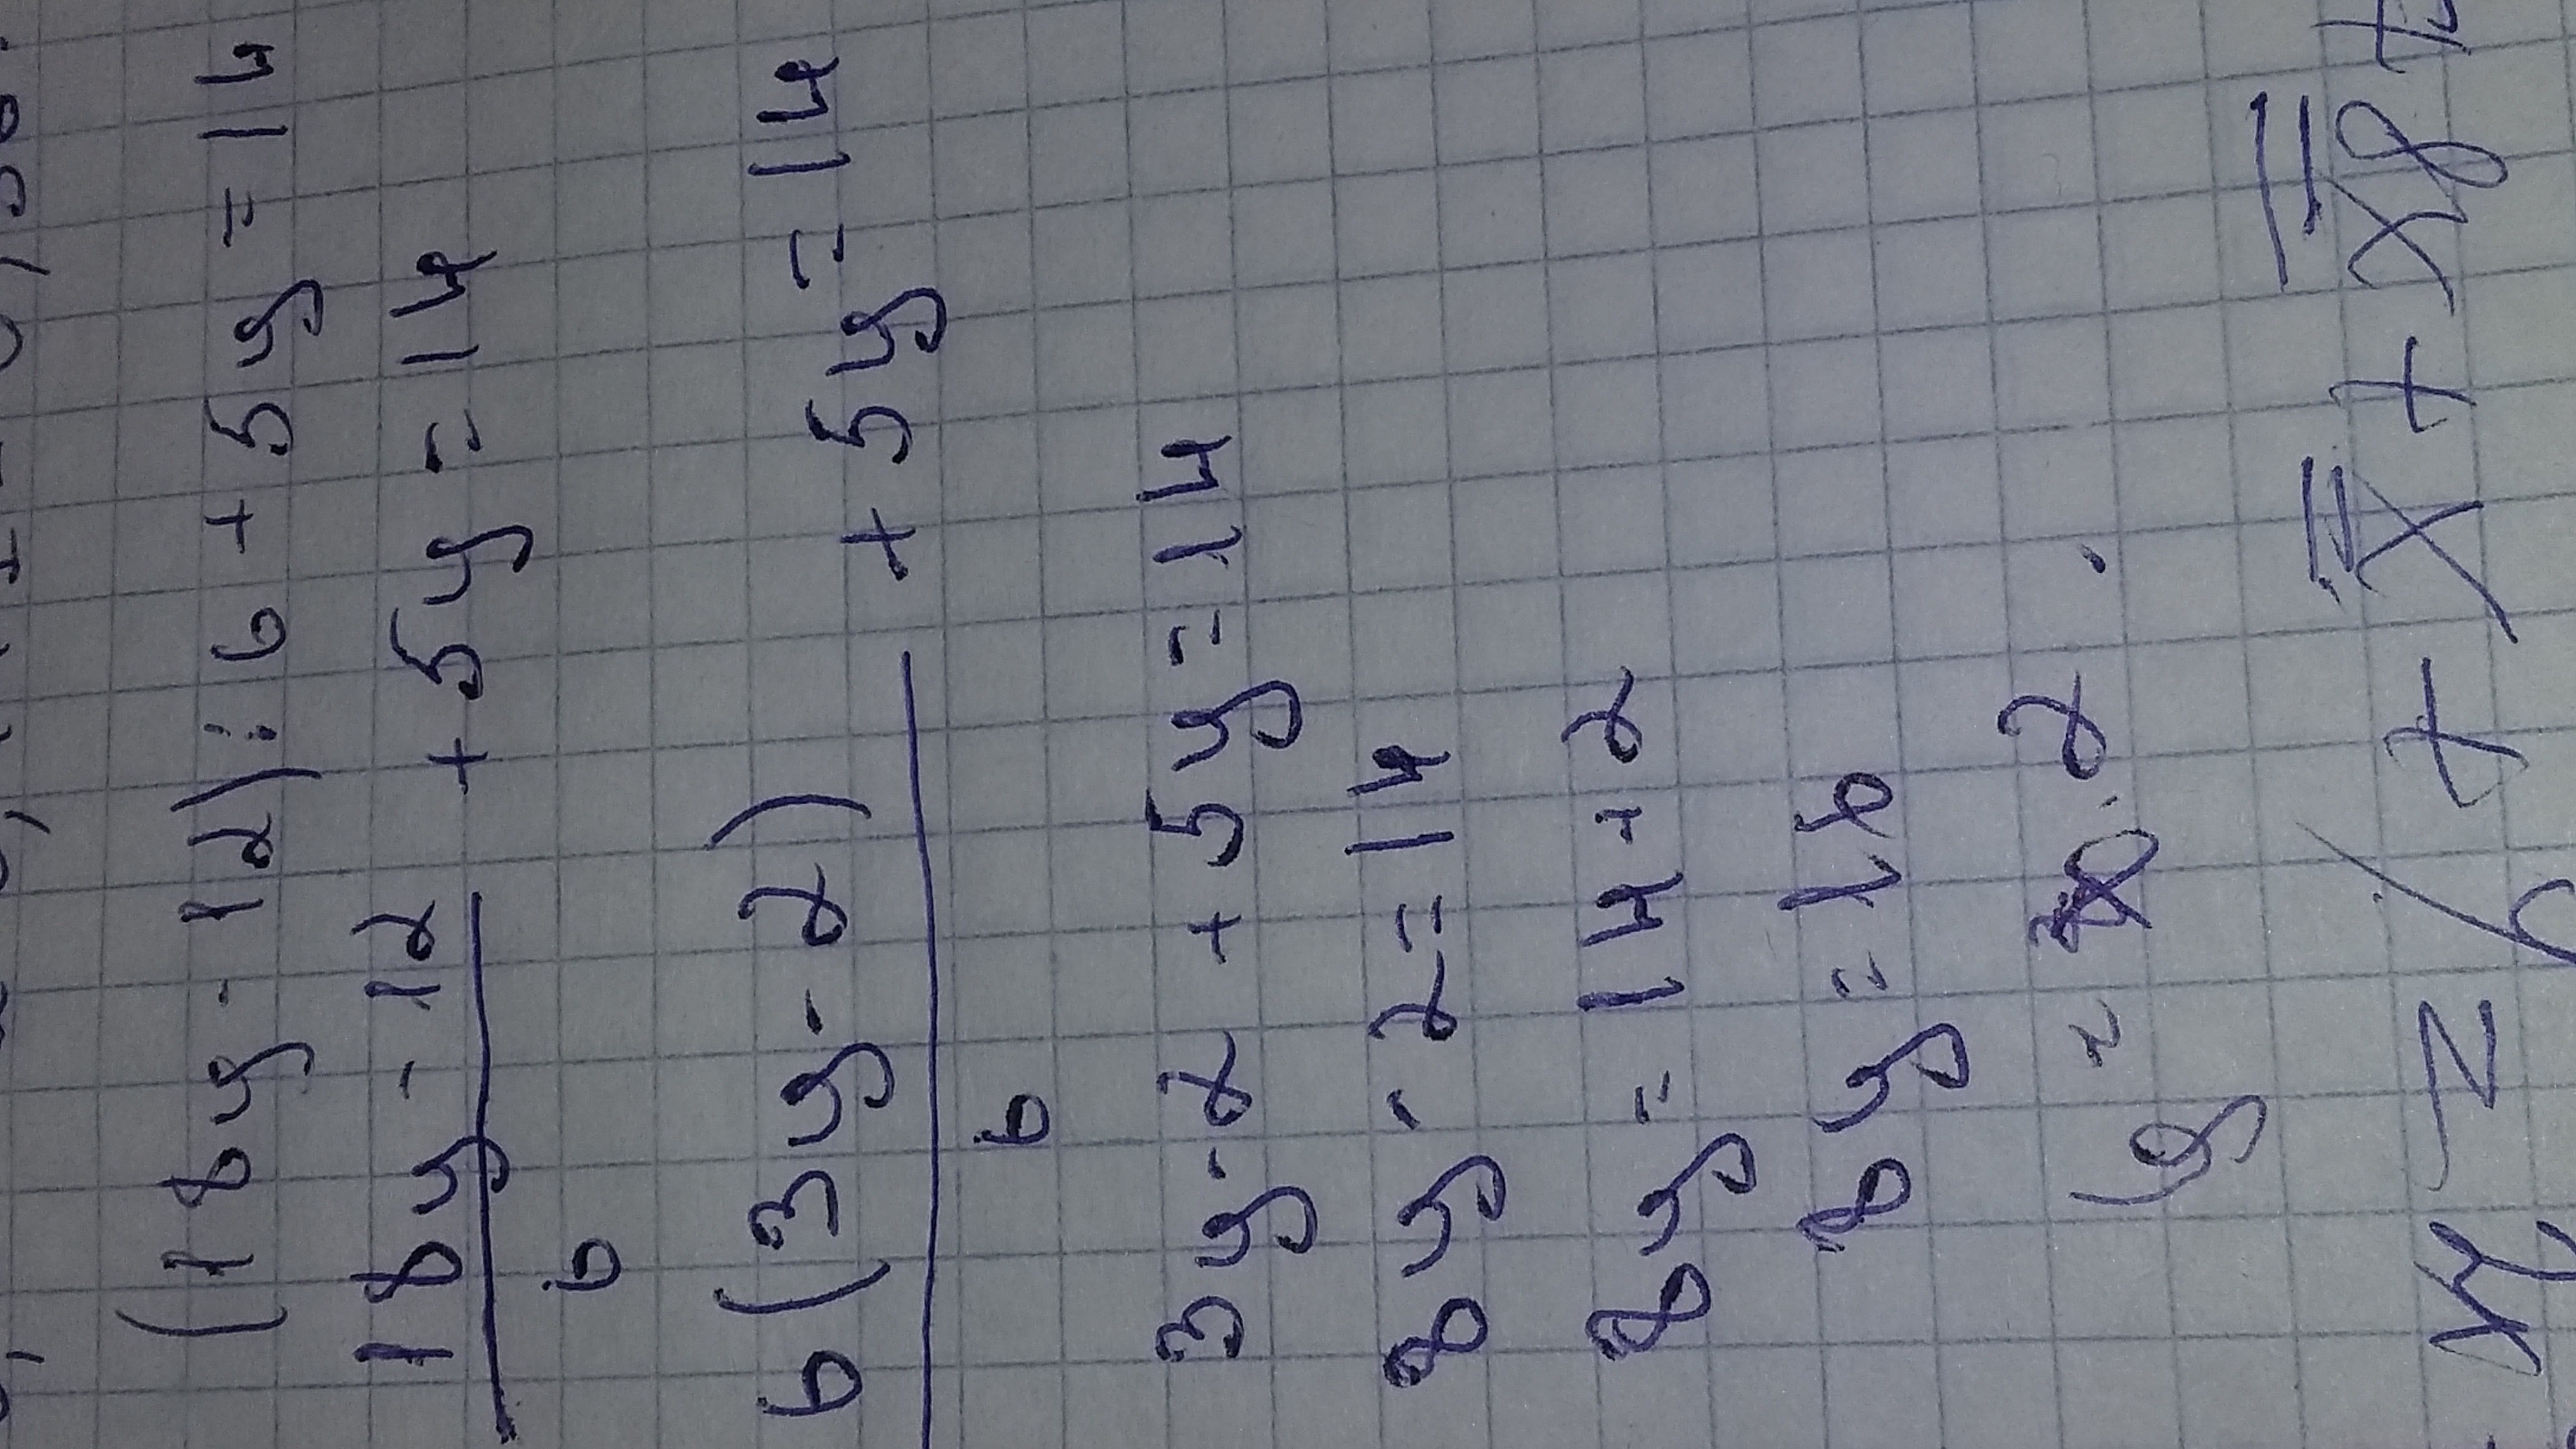 (18y - 12) : 6 + 5y = 14
18y - 12 + 5y = 14
6
6(3y - 2) + 5y = 14
6
3y - 2 + 5y = 14
8y - 2 = 14
8y = 14 + 2
8y = 16
y = 2.